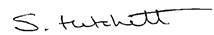 S. Hutchett